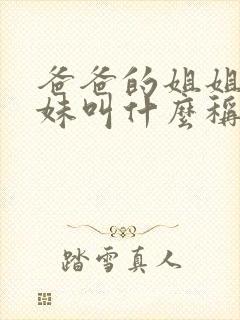 爸爸的姐姐
妹叫什麼稱
踏雪真人